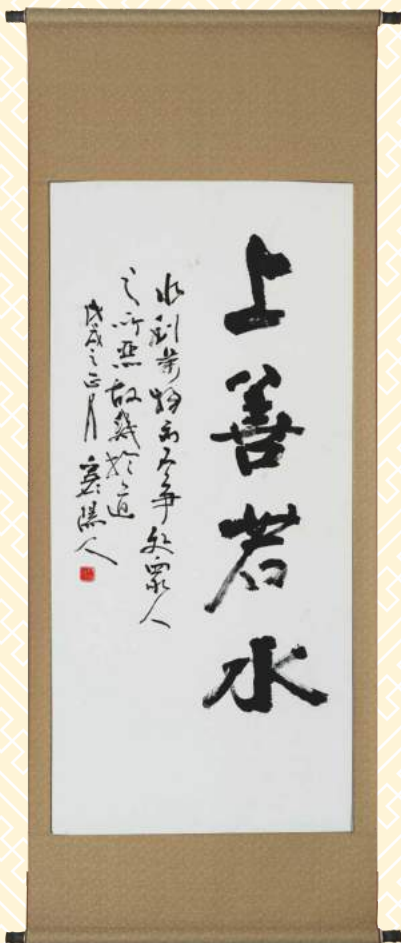 上善若水
水利萬物而不争處衆人
之所惡故幾於道
戊戌之正月